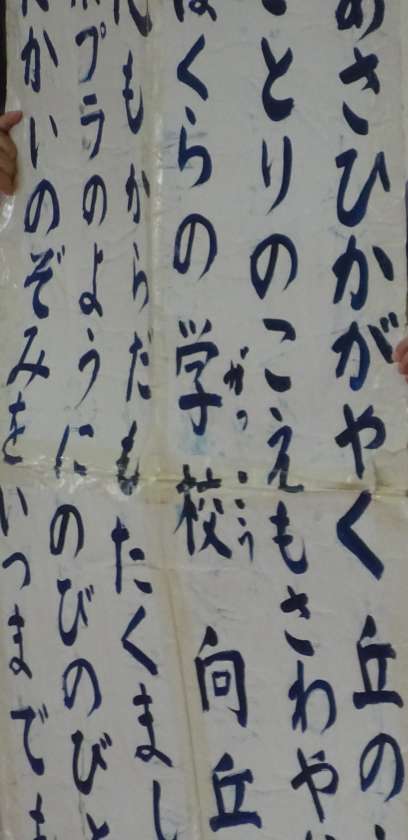 あさひかがやく 丘の
ことりのこえもさわや
ぼくらの学校 向丘
がっこう
もからだもたくまし
ポプラのようにのびのびと
かいのぞみをいつまでも